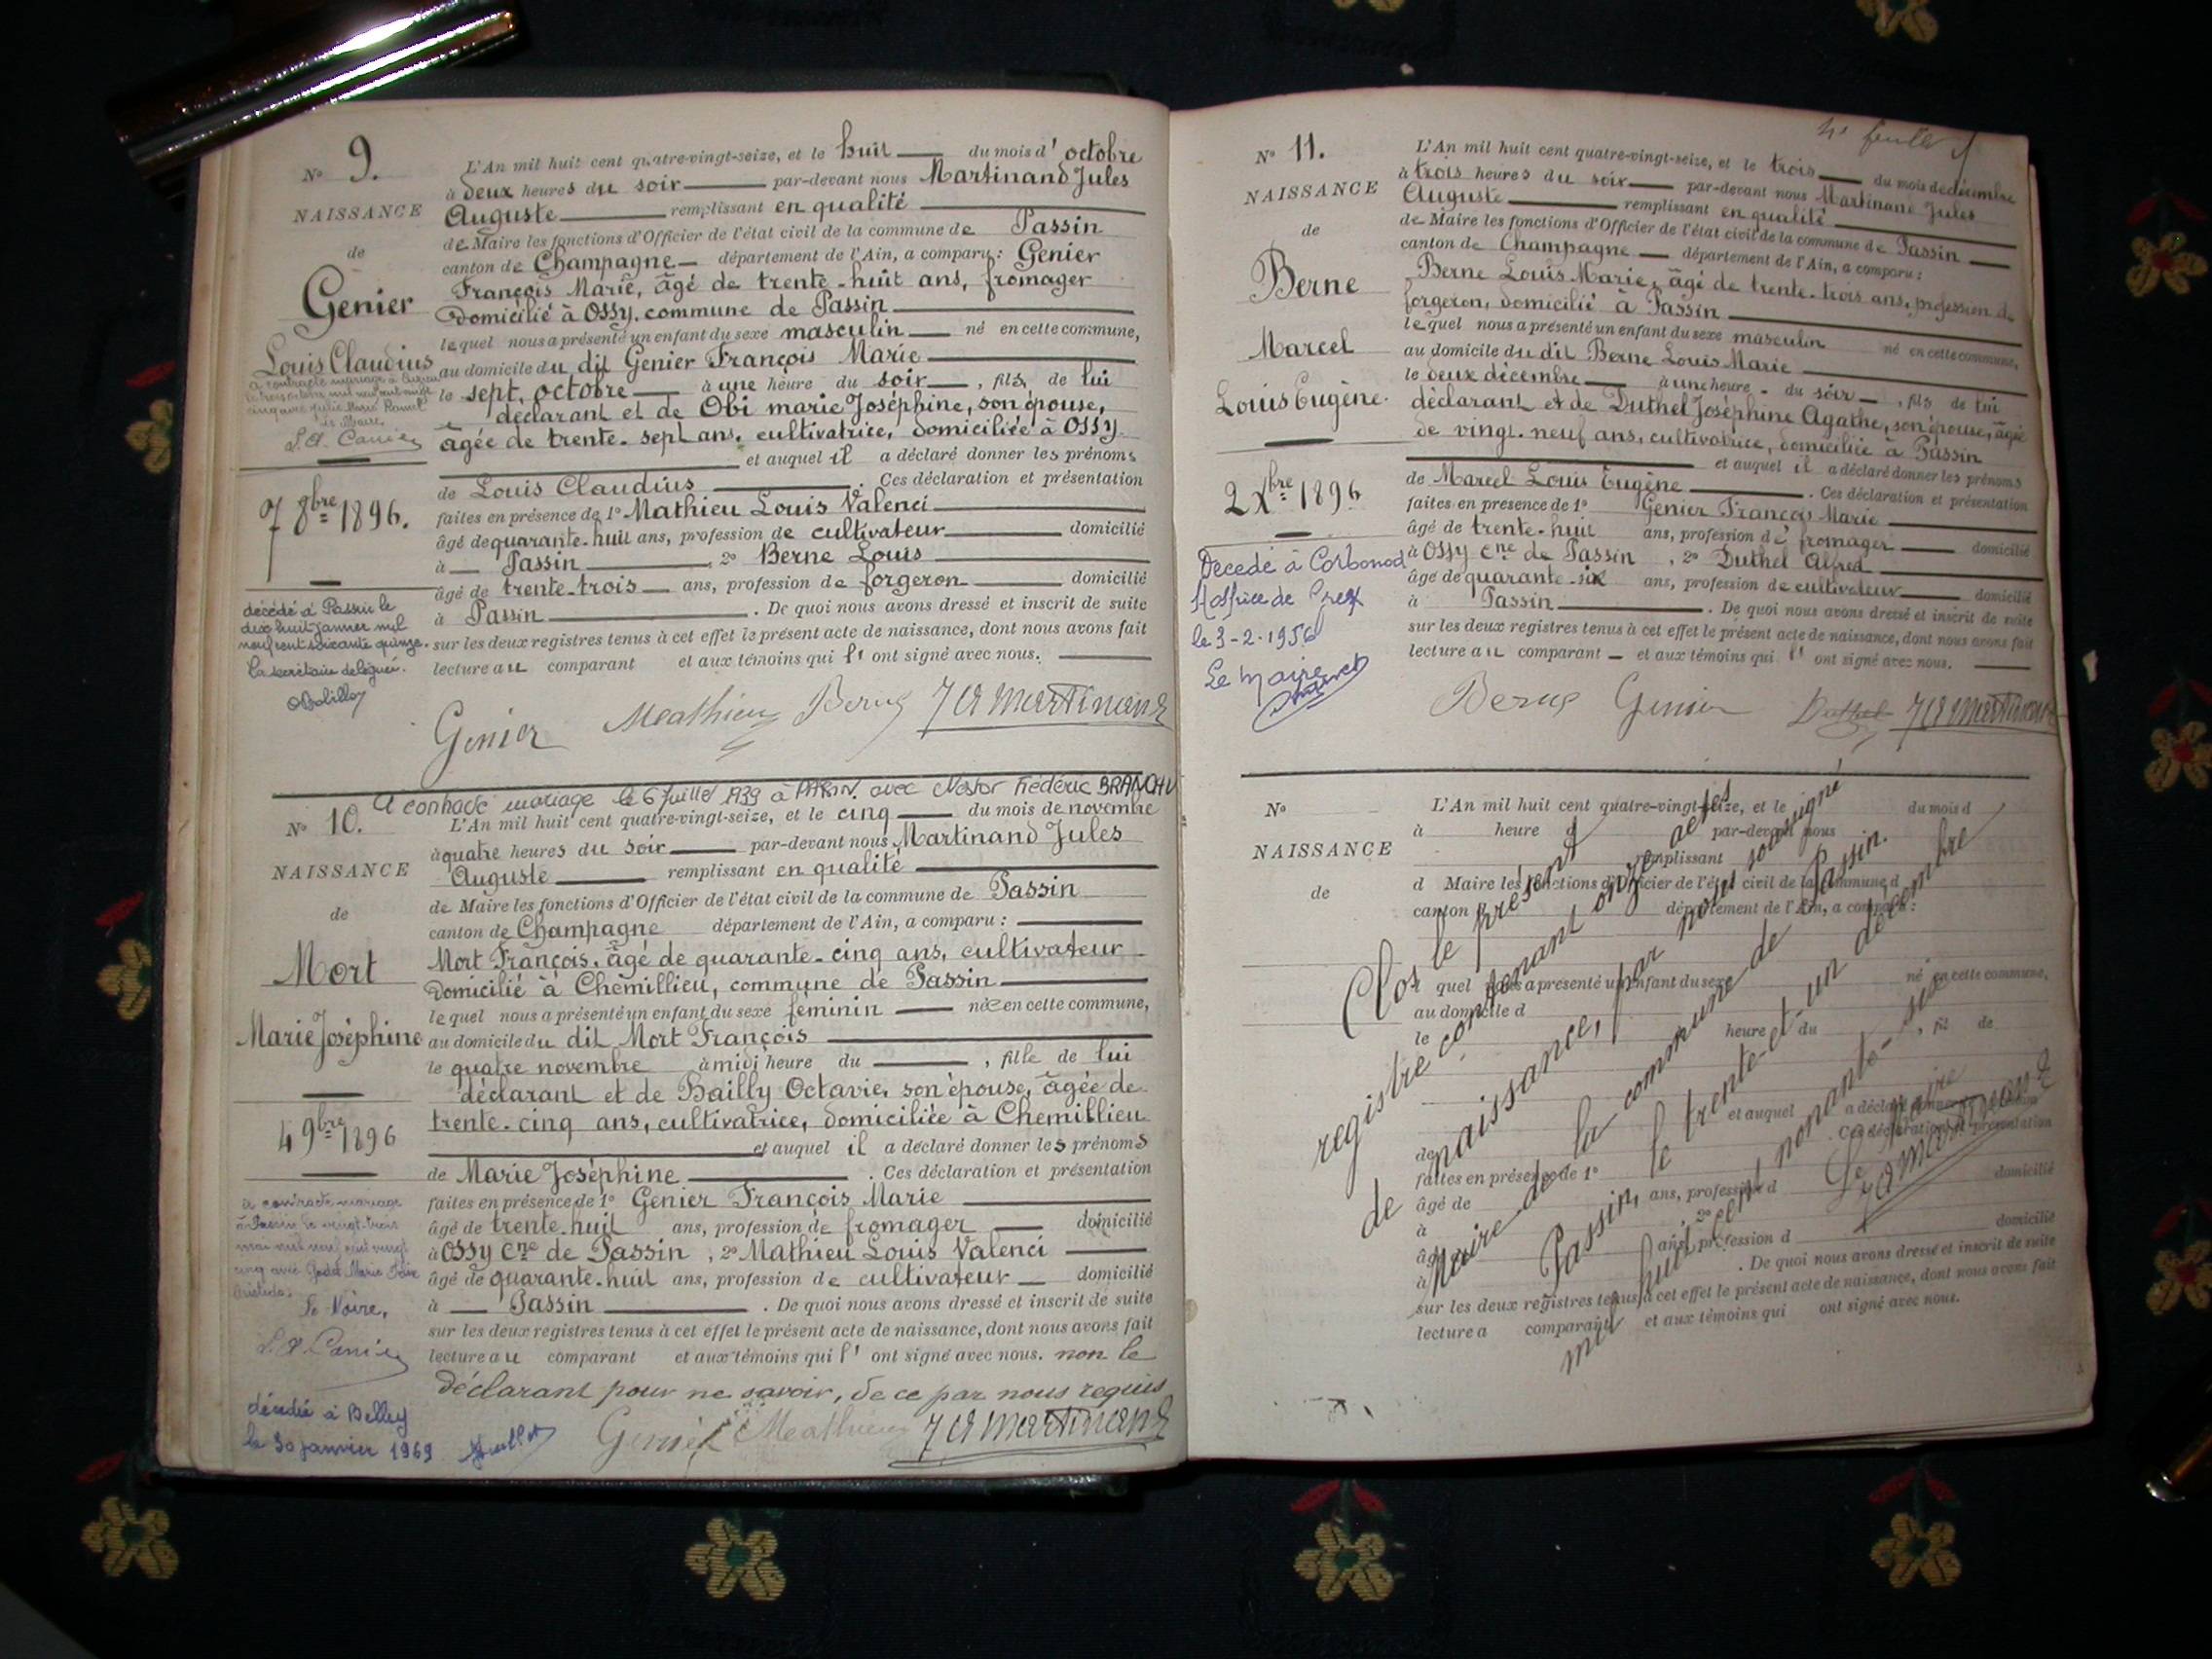 N° 9.
NAISSANCE
de
Genier
Louis Claudius
a contracté mariage à
le
Le Maire,
7 8bre 1896.
décédé à Passin le
dix huit janvier mil
neuf cent soixante quinze.
La secrétaire déléguée.
L'An mil huit cent quatre-vingt-seize, et le huit du mois d'octobre
à deux heures du soir par-devant nous Martinand Jules
Auguste remplissant en qualité
de Maire les fonctions d'Officier de l'état civil de la commune de Passin
canton de Champagne département de l'Ain, a comparu : Genier
François Marie, âgé de trente-huit ans, fromager
domicilié à Ossy, commune de Passin
lequel nous a présenté un enfant du sexe masculin né en cette commune,
au domicile du dit Genier François Marie
le sept octobre à une heure du soir, fils de lui
déclarant et de Obi marie Joséphine, son épouse,
âgée de trente-sept ans, cultivatrice, domiciliée à Ossy
et auquel il a déclaré donner les prénoms
de Louis Claudius. Ces déclaration et présentation
faites en présence de 1° Mathieu Louis Valenci
âgé de quarante-huit ans, profession de cultivateur domicilié
à Passin, 2° Berne Louis
âgé de trente-trois ans, profession de forgeron domicilié
à Passin. De quoi nous avons dressé et inscrit de suite
sur les deux registres tenus à cet effet le présent acte de naissance, dont nous avons fait
lecture au comparant et aux témoins qui l'ont signé avec nous.
Genier Mathieu Berne JA Martinand
A contracté mariage le 6 Juillet 1939 à avec Nestor Frédéric BRANCHU
N° 10.
NAISSANCE
de
Mort
Marie Joséphine
4 9bre 1896
a contracté mariage
à Passin le vingt-trois
mai mil neuf cent vingt
cinq avec Marie
Le Maire,
décédée à Belley
le 30 janvier 1969
L'An mil huit cent quatre-vingt-seize, et le cinq du mois de novembre
à quatre heures du soir par-devant nous Martinand Jules
Auguste remplissant en qualité
de Maire les fonctions d'Officier de l'état civil de la commune de Passin
canton de Champagne département de l'Ain, a comparu :
Mort François, âgé de quarante-cinq ans, cultivateur
domicilié à Chemillieu, commune de Passin
lequel nous a présenté un enfant du sexe féminin née en cette commune,
au domicile du dit Mort François
le quatre novembre à midi heure du, fille de lui
déclarant et de Bailly Octavie, son épouse, âgée de
trente-cinq ans, cultivatrice, domiciliée à Chemillieu
et auquel il a déclaré donner les prénoms
de Marie Joséphine. Ces déclaration et présentation
faites en présence de 1° Genier François Marie
âgé de trente-huit ans, profession de fromager domicilié
à Ossy Cne de Passin, 2° Mathieu Louis Valenci
âgé de quarante-huit ans, profession de cultivateur domicilié
à Passin. De quoi nous avons dressé et inscrit de suite
sur les deux registres tenus à cet effet le présent acte de naissance, dont nous avons fait
lecture au comparant et aux témoins qui l'ont signé avec nous. non le
déclarant pour ne savoir, de ce par nous requis
Genier Mathieu JA Martinand
4e feuille
N° 11.
NAISSANCE
de
Berne
Marcel
Louis Eugène.
2 Xbre 1896
Décédé à Corbonod
Hospice de
le 3-2-1956
Le Maire
L'An mil huit cent quatre-vingt-seize, et le trois du mois de décembre
à trois heures du soir par-devant nous Martinand Jules
Auguste remplissant en qualité
de Maire les fonctions d'Officier de l'état civil de la commune de Passin
canton de Champagne département de l'Ain, a comparu :
Berne Louis Marie, âgé de trente-trois ans, profession de
forgeron, domicilié à Passin
lequel nous a présenté un enfant du sexe masculin né en cette commune,
au domicile du dit Berne Louis Marie
le deux décembre à une heure du soir, fils de lui
déclarant et de Duthel Joséphine Agathe, son épouse, âgée
de vingt-neuf ans, cultivatrice, domiciliée à Passin
et auquel il a déclaré donner les prénoms
de Marcel Louis Eugène. Ces déclaration et présentation
faites en présence de 1° Genier François Marie
âgé de trente-huit ans, profession de fromager domicilié
à Ossy Cne de Passin, 2° Duthel Alfred
âgé de quarante-six ans, profession de cultivateur domicilié
à Passin. De quoi nous avons dressé et inscrit de suite
sur les deux registres tenus à cet effet le présent acte de naissance, dont nous avons fait
lecture au comparant et aux témoins qui l'ont signé avec nous.
Berne Genier Duthel JA Martinand
N°
NAISSANCE
de
L'An mil huit cent quatre-vingt-seize, et le du mois d
à heure d par-devant nous
remplissant
d Maire les fonctions d'Officier de l'état civil de la commune d
canton d département de l'Ain, a comparu :
quel nous a présenté un enfant du sexe né en cette commune,
au domicile d
le heure du, fil de
et auquel a déclaré donner
de Ces déclaration et présentation
faites en présence de 1°
âgé de ans, profession d domicilié
à 2°
âgé ans, profession d domicilié
à. De quoi nous avons dressé et inscrit de suite
sur les deux registres tenus à cet effet le présent acte de naissance, dont nous avons fait
lecture a comparant et aux témoins qui ont signé avec nous.
Clos le présent
registre contenant onze actes
de naissance, par nous soussigné
Maire de la commune de Passin.
Passin, le trente-et-un décembre
mil huit cent nonante-six
Le Maire
JA Martinand